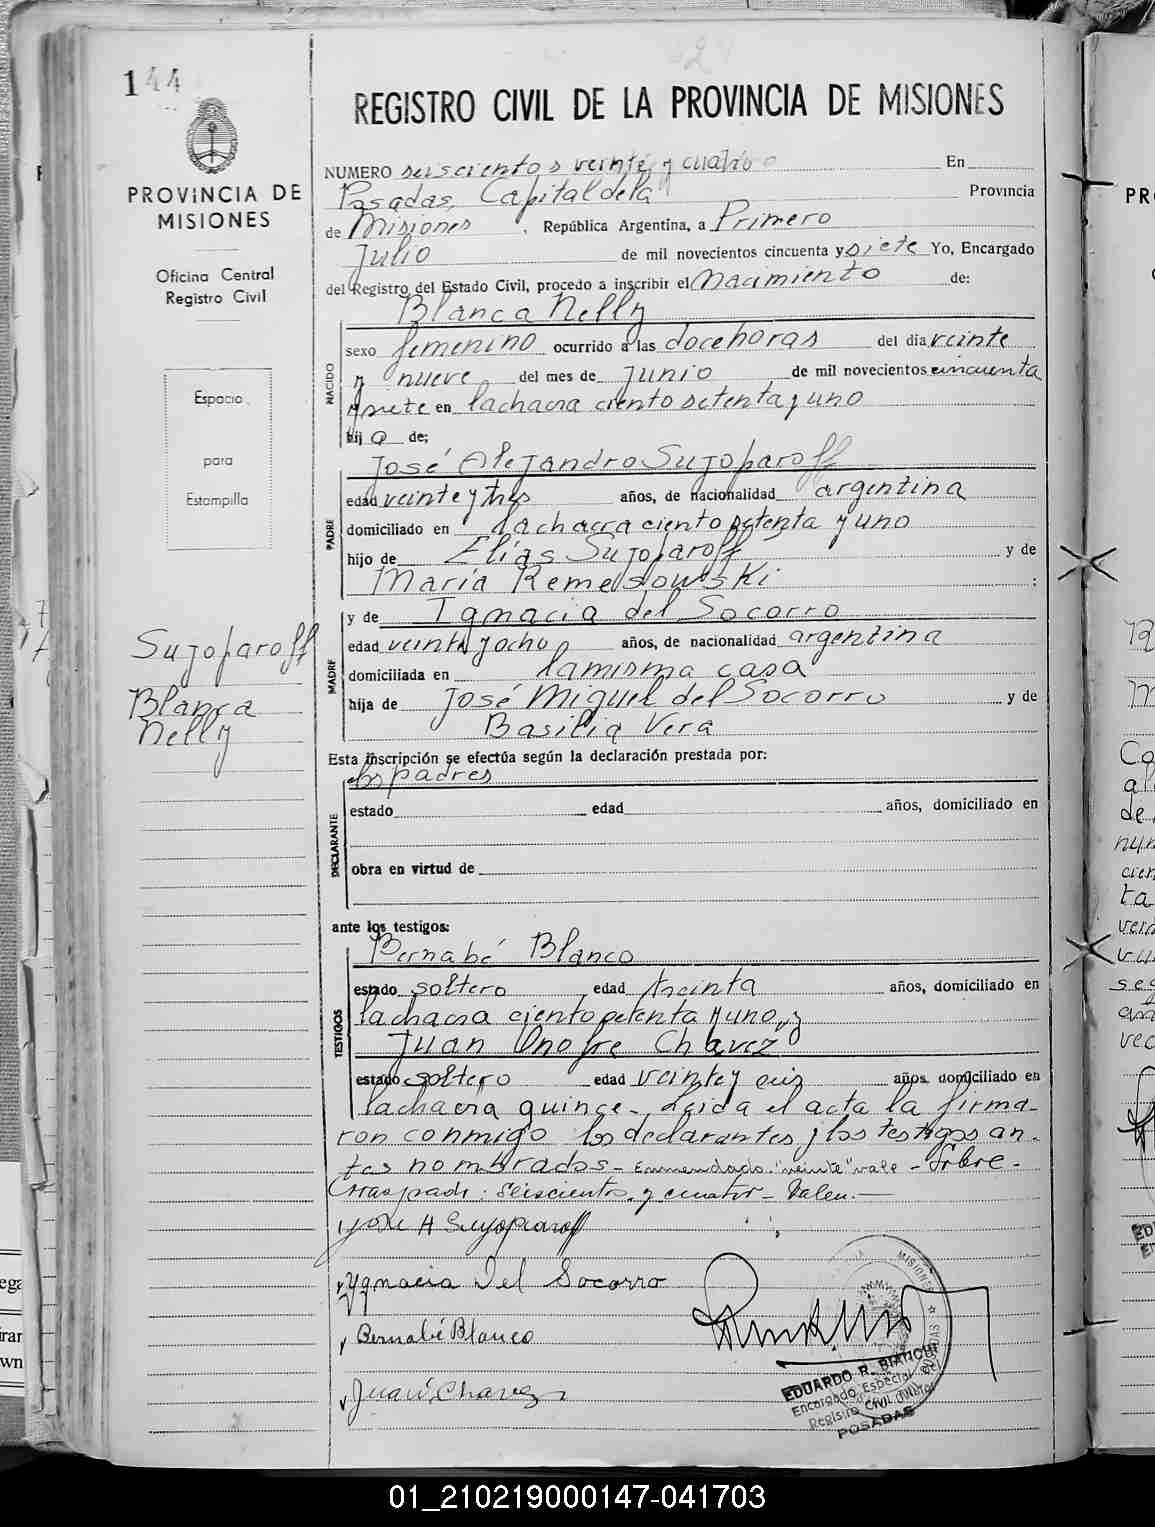 144
PROVINCIA DE
MISIONES
Oficina Central
Registro Civil
Espacio
para
Estampilla
Sujoparoff
Blanca
Nelly
REGISTRO CIVIL DE LA PROVINCIA DE MISIONES
NUMERO seiscientos veinte y cuatro En
Posadas, Capital de la Provincia
de Misiones, República Argentina, a Primero
Julio de mil novecientos cincuenta y siete Yo, Encargado
del Registro del Estado Civil, procedo a inscribir el nacimiento de:
Blanca Nelly
NACIDO
sexo femenino ocurrido a las doce horas del día veinte
y nueve del mes de Junio de mil novecientos cincuenta
y siete en la chacra ciento setenta y uno
hija de:
José Alejandro Sujoparoff
PADRE
edad veinte y tres años, de nacionalidad argentina
domiciliado en la chacra ciento setenta y uno
hijo de Elías Sujoparoff y de
María Remesowski :
y de Ignacia del Socorro
MADRE
edad veinte y ocho años, de nacionalidad argentina
domiciliada en la misma casa
hija de José Miguel del Socorro y de
Basilia Vera
Esta inscripción se efectúa según la declaración prestada por:
los padres
DECLARANTE
estado edad años, domiciliado en
obra en virtud de
ante los testigos:
Bernabé Blanco
TESTIGOS
estado soltero edad treinta años, domiciliado en
la chacra ciento setenta y uno, y
Juan Onofre Chavez
estado soltero edad veinte y seis años, domiciliado en
la chacra quince - Leida el acta la firma-
ron conmigo los declarantes y los testigos an-
tes nombrados - Enmendado: "veinte" vale - Sobre-
rraspado: Seiscientos y cuatro - Valen.-
José A Sujoparoff
Ygnacia Del Socorro
Bernabé Blanco
Juan Chavez
MISIONES
POSADAS
EDUARDO R. BIANCHI
Encargado Especial del
Registro Civil
POSADAS
01_210219000147-041703